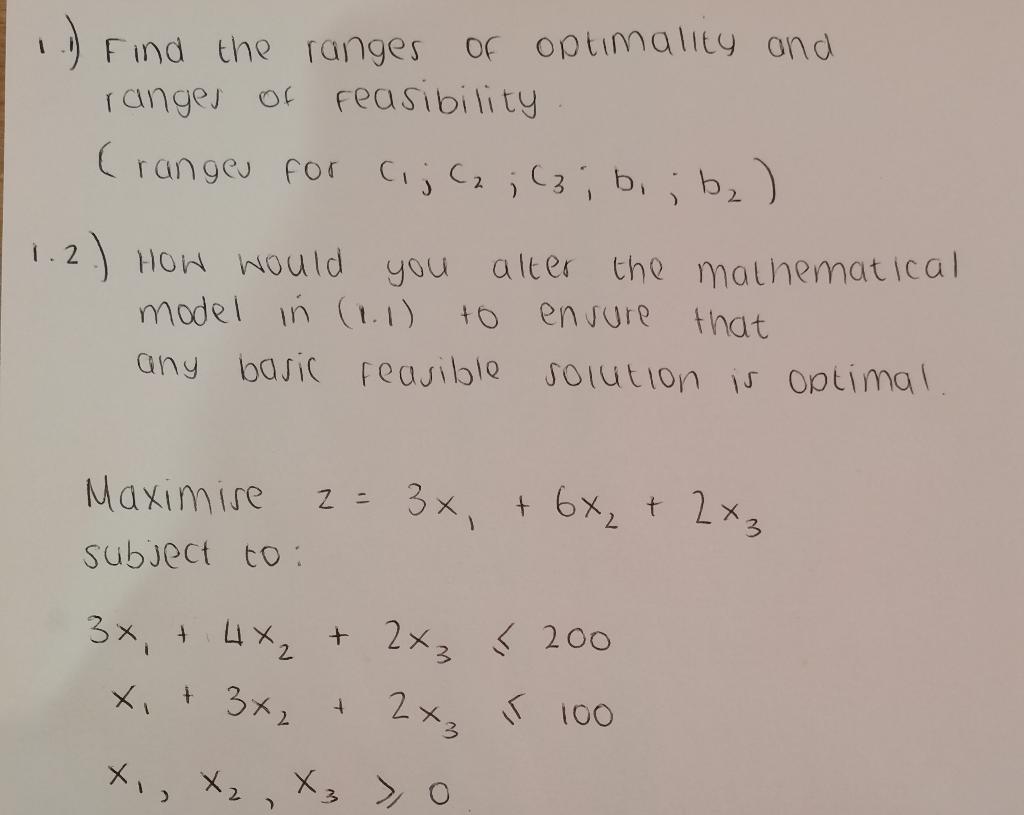 1.1) Find the ranges of optimality and
ranges of feasibility.
(ranges for c₁; c₂; c₃; b₁; b₂)
1.2) How would you alter the mathematical
model in (1.1) to ensure that
any basic feasible solution is optimal.
Maximise z = 3x₁ + 6x₂ + 2x₃
subject to:
3x₁ + 4x₂ + 2x₃ ⩽ 200
x₁ + 3x₂ + 2x₃ ⩽ 100
x₁, x₂, x₃ ⩾ 0